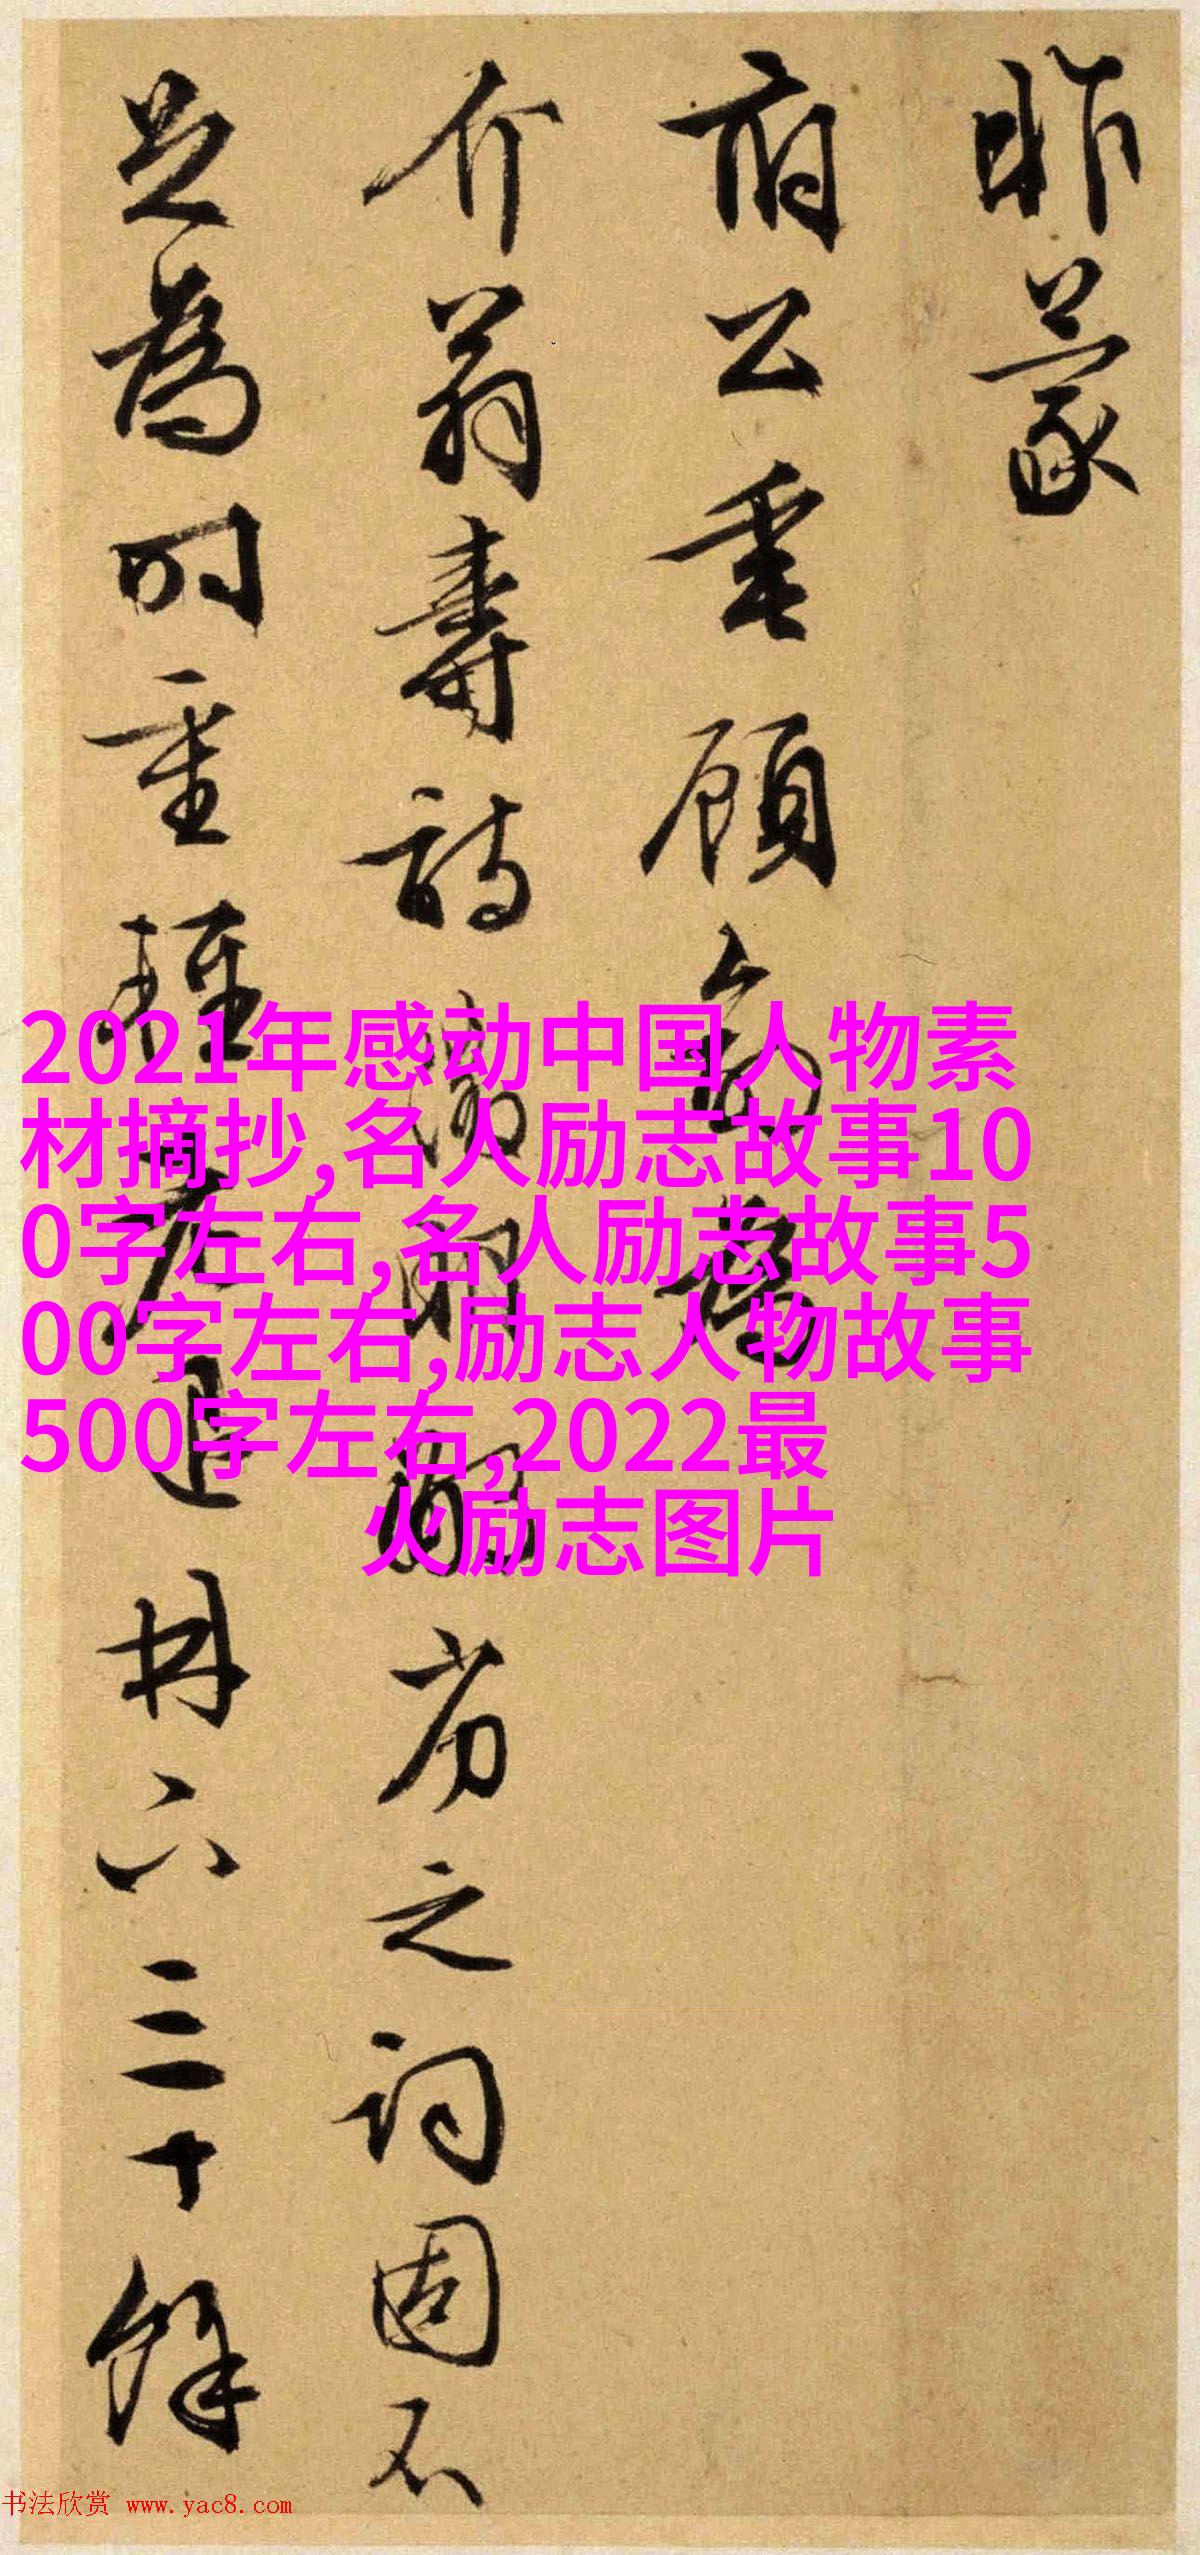 昨蒙
府公垂顧
介翁壽詩劣之詞固不
足為時重輕六三十餘
2021年感动中国人物素
材摘抄,名人励志故事10
0字左右,名人励志故事5
00字左右,励志人物故事
500字左右,2022最
火励志图片
书法欣赏 www.yac8.com